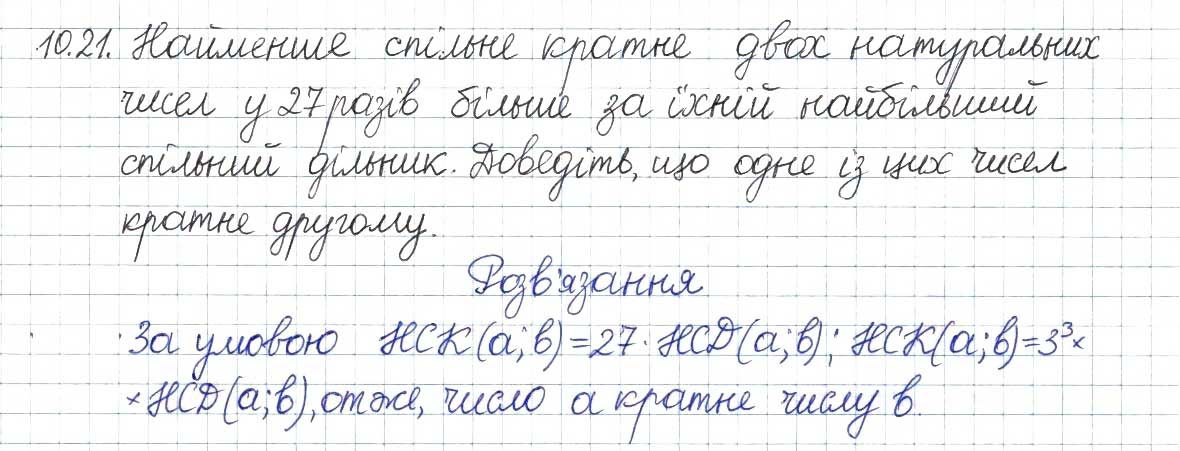 10.21. Найменше спільне кратне двох натуральних
чисел у 27 разів більше за їхній найбільший
спільний дільник. Доведіть, що одне із цих чисел
кратне другому.
Розв'язання
За умовою НСК(а;в)=27·НСD(а;в); НСК(а;в)=3³×
×НСD(а;в), отже, число а кратне числу в.